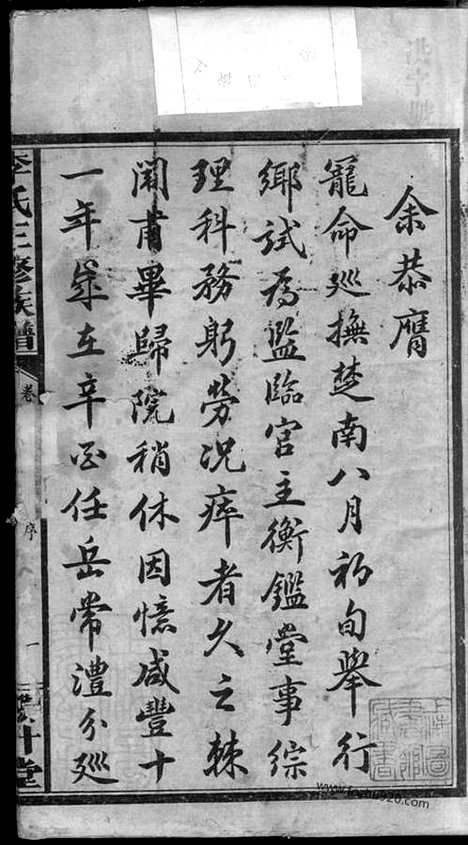 余恭膺
寵命巡撫楚南八月初旬舉行
鄉試為監臨官主衡鑑堂事綜
理科務躬勞況瘁者久之棘
闈肅畢歸院稍休因憶咸豐十
一年歲在辛酉任岳常澧分巡
李氏三修族譜
卷
序
一
上海圖書館藏書
www.fozhu920.com